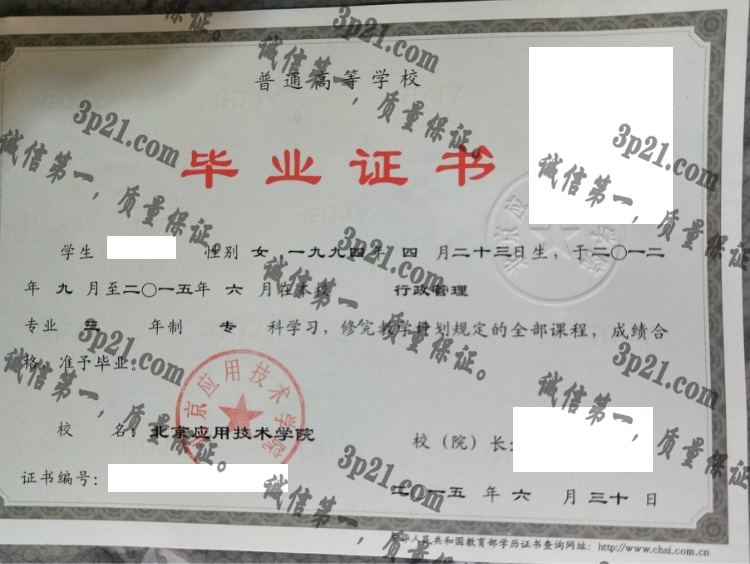 普通高等学校
毕业证书
学生 性别 女 一九九四年 四 月二十三日生，于二〇一二
年 九 月至二〇一五年 六 月在本校 行政管理
专业 三 年制 专 科学习，修完教学计划规定的全部课程，成绩合
格，准予毕业。
校 名：北京应用技术学院
校（院）长：
证书编号：
二〇一五 年 六 月 三十 日
中华人民共和国教育部学历证书查询网址：http://www.chsi.com.cn
北京应用技术学院
3p21.com
诚信第一，质量保证。
3p21.com
诚信第一，质量保证。
3p21.com
诚信第一，质量保证。
3p21.com
诚信第一，质量保证。
3p21.com
诚信第一，质量保证。
3p21.com
诚信第一，质量保证。
3p21.com
诚信第一，质量保证。
3p21.com
诚信第一，质量保证。